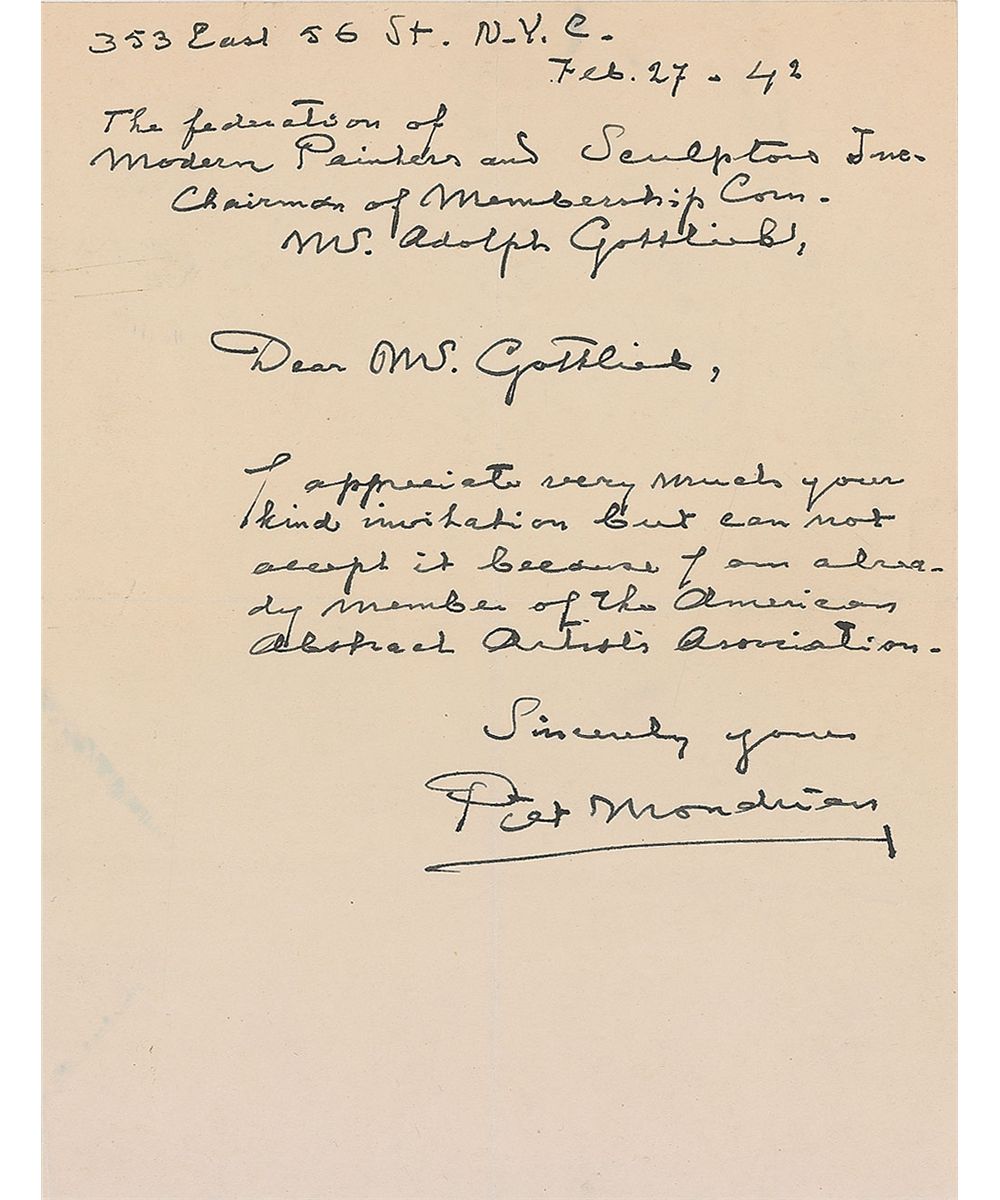 353 East 56 St. N.Y.C.
Feb. 27 - 42
The federation of
Modern Painters and Sculptors Inc.
Chairman of Membership Com.
Mr. Adolph Gottlieb,
Dear Mr. Gottlieb,
I appreciate very much your
kind invitation but can not
accept it because I am alrea-
dy member of the American
Abstract Artists Asociation.
Sincerely yours
Piet Mondrian